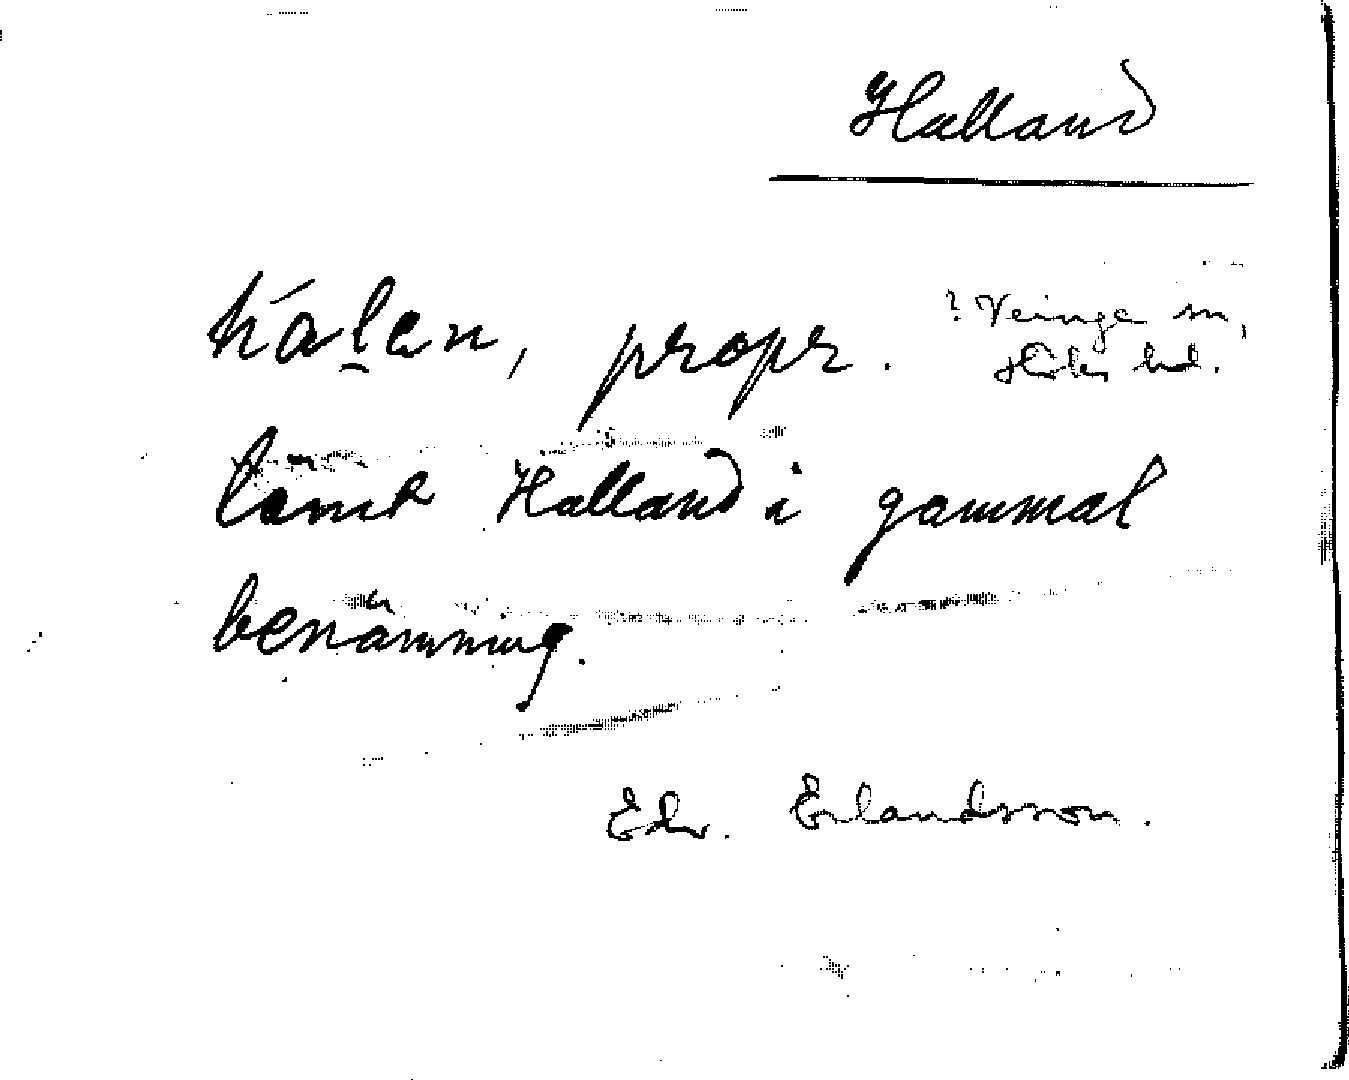 Halland
hálen, propr. ? Veinge sn,
Höks hd.
länet Halland i gammal
benämning.
Edv. Erlandsson.